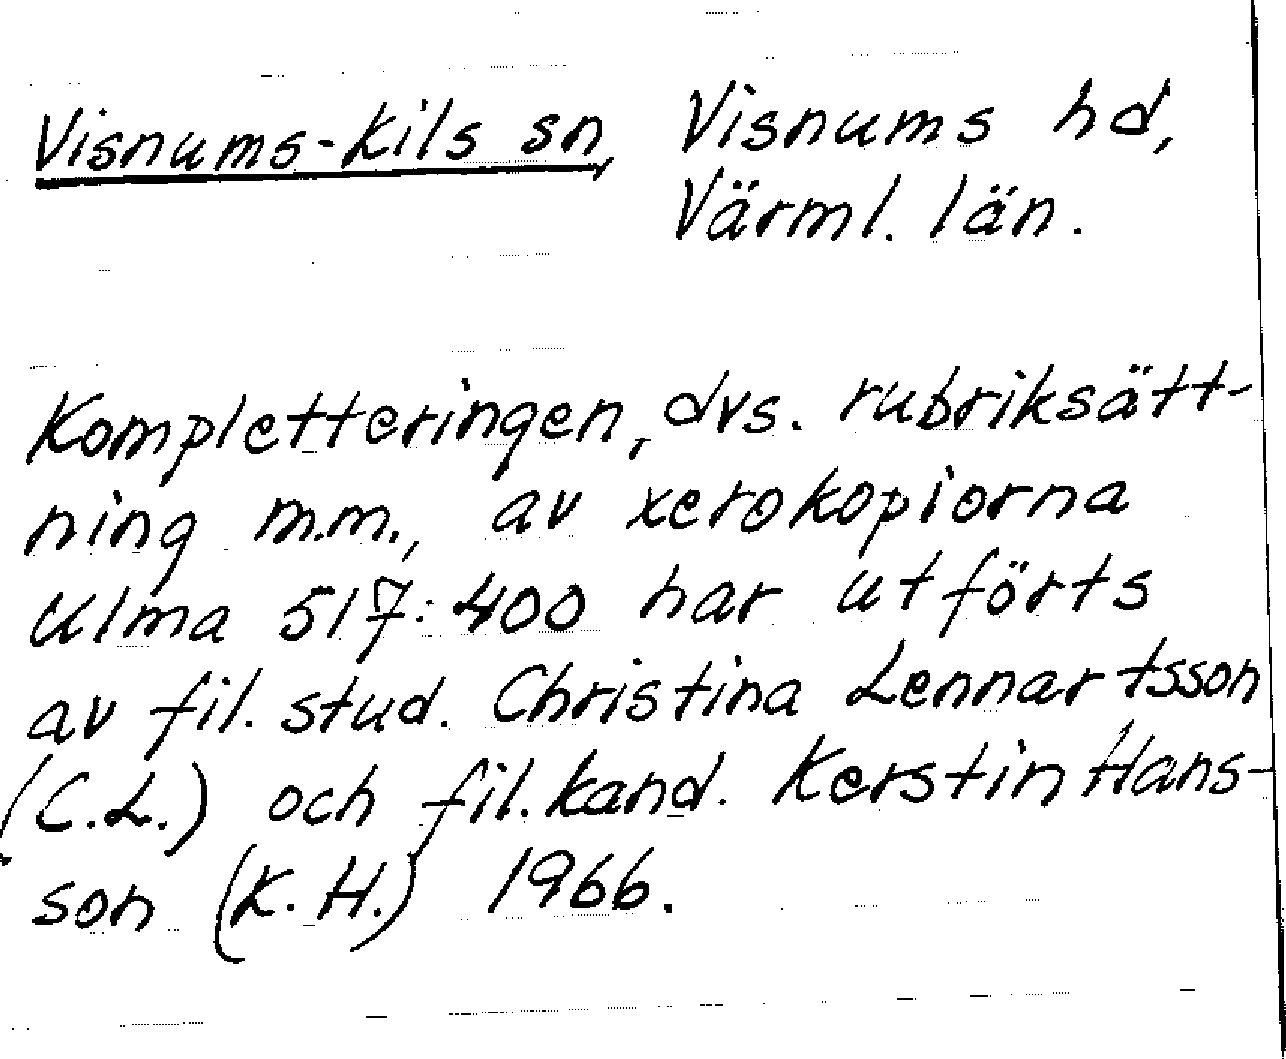 Visnums-Kils sn, Visnums hd,
Värml. län.
Kompletteringen, dvs. rubriksätt-
ning m.m., av xerokopiorna
Ulma 517:400 har utförts
av fil. stud. Christina Lennartsson
(C.L.) och fil. kand. Kerstin Hans-
son (K.H.) 1966.